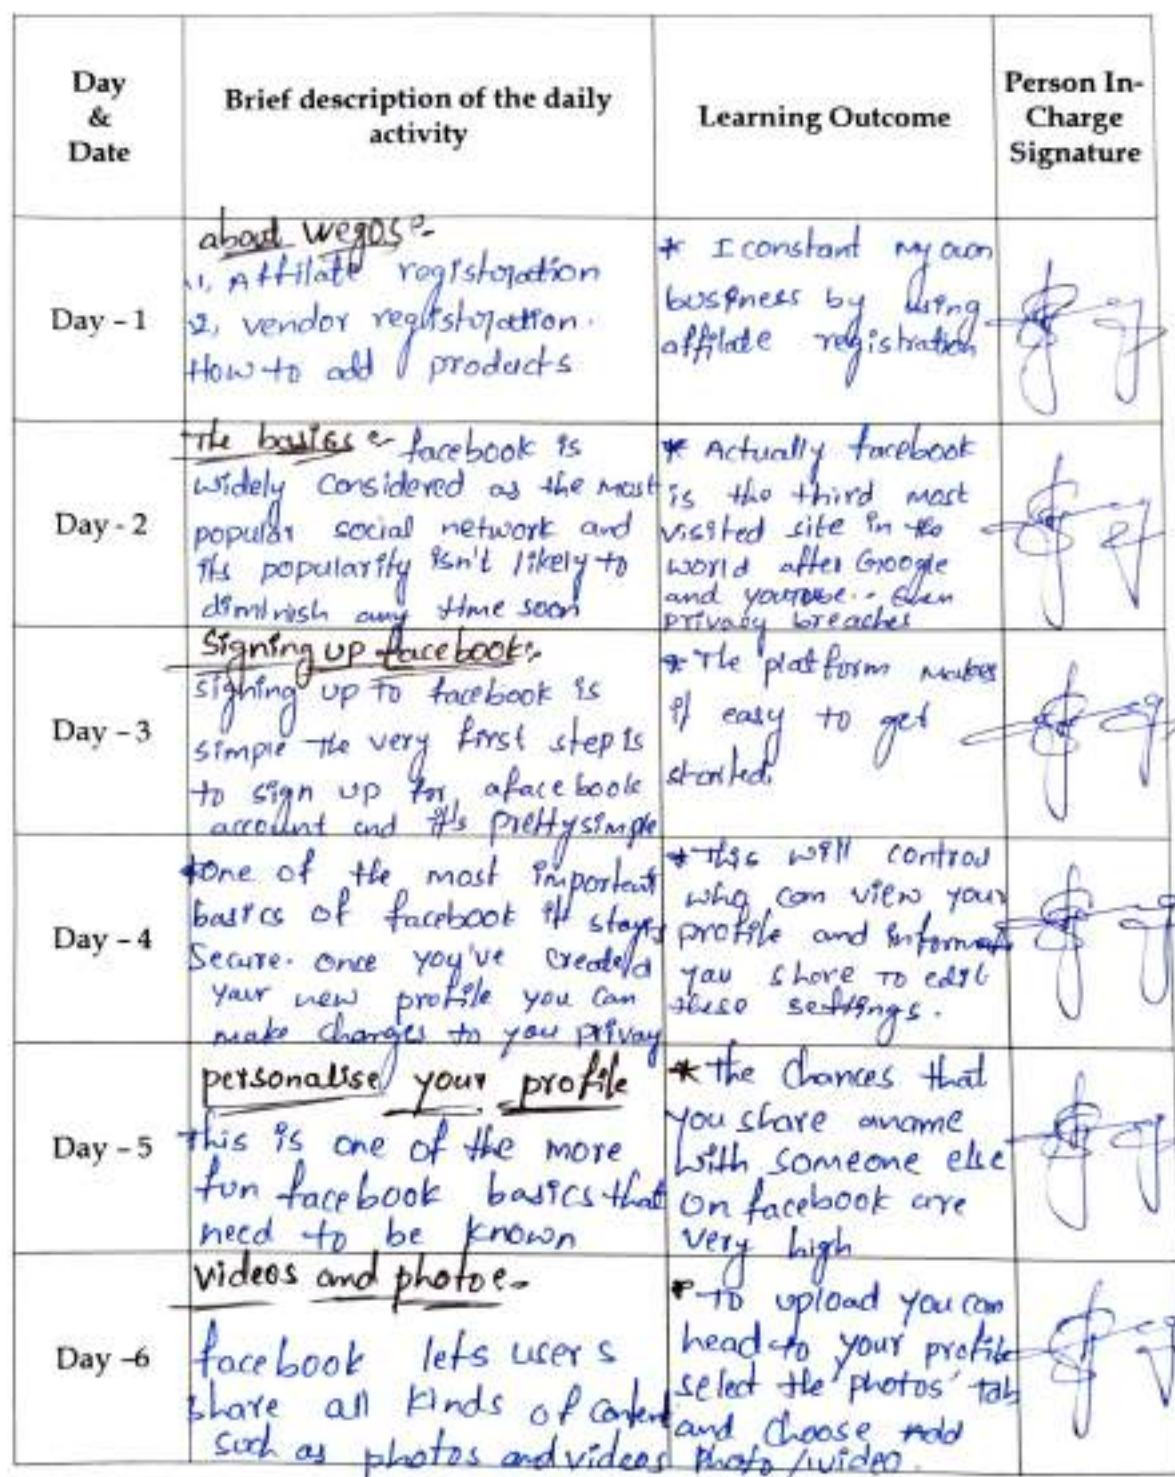 Day
&
Date
Brief description of the daily
activity
Learning Outcome
Person In-
Charge
Signature
Day - 1
about wegos :-
1, Affilate registoration
2, vendor registoration.
How to add products
* I constant my own
business by using
affilate registration
Day - 2
The basics :- facebook is
widely considered as the most
popular social network and
its popularity isn't likely to
diminish any time soon
* Actually facebook
is the third most
visited site in the
world after Google
and youtube.. Even
privacy breaches
Day - 3
Signing up facebook :-
signing up to facebook is
simple the very first step is
to sign up for aface book
account and it's pretty simple
* The platform makes
it easy to get
started.
Day - 4
*One of the most important
basics of facebook it stays
Secure. once you've created
your new profile you can
make changes to you privay
* This will control
who can view your
profile and informat
you share To edit
these settings.
Day - 5
personalise your profile
This is one of the more
fun facebook basics that
need to be known
* The chances that
you share aname
with someone else
on facebook are
very high
Day -6
videos and photo :-
facebook lets users
share all kinds of content
such as photos and videos
* To upload you can
head to your profile
select the 'photos' tab
and choose Add
photo /video.